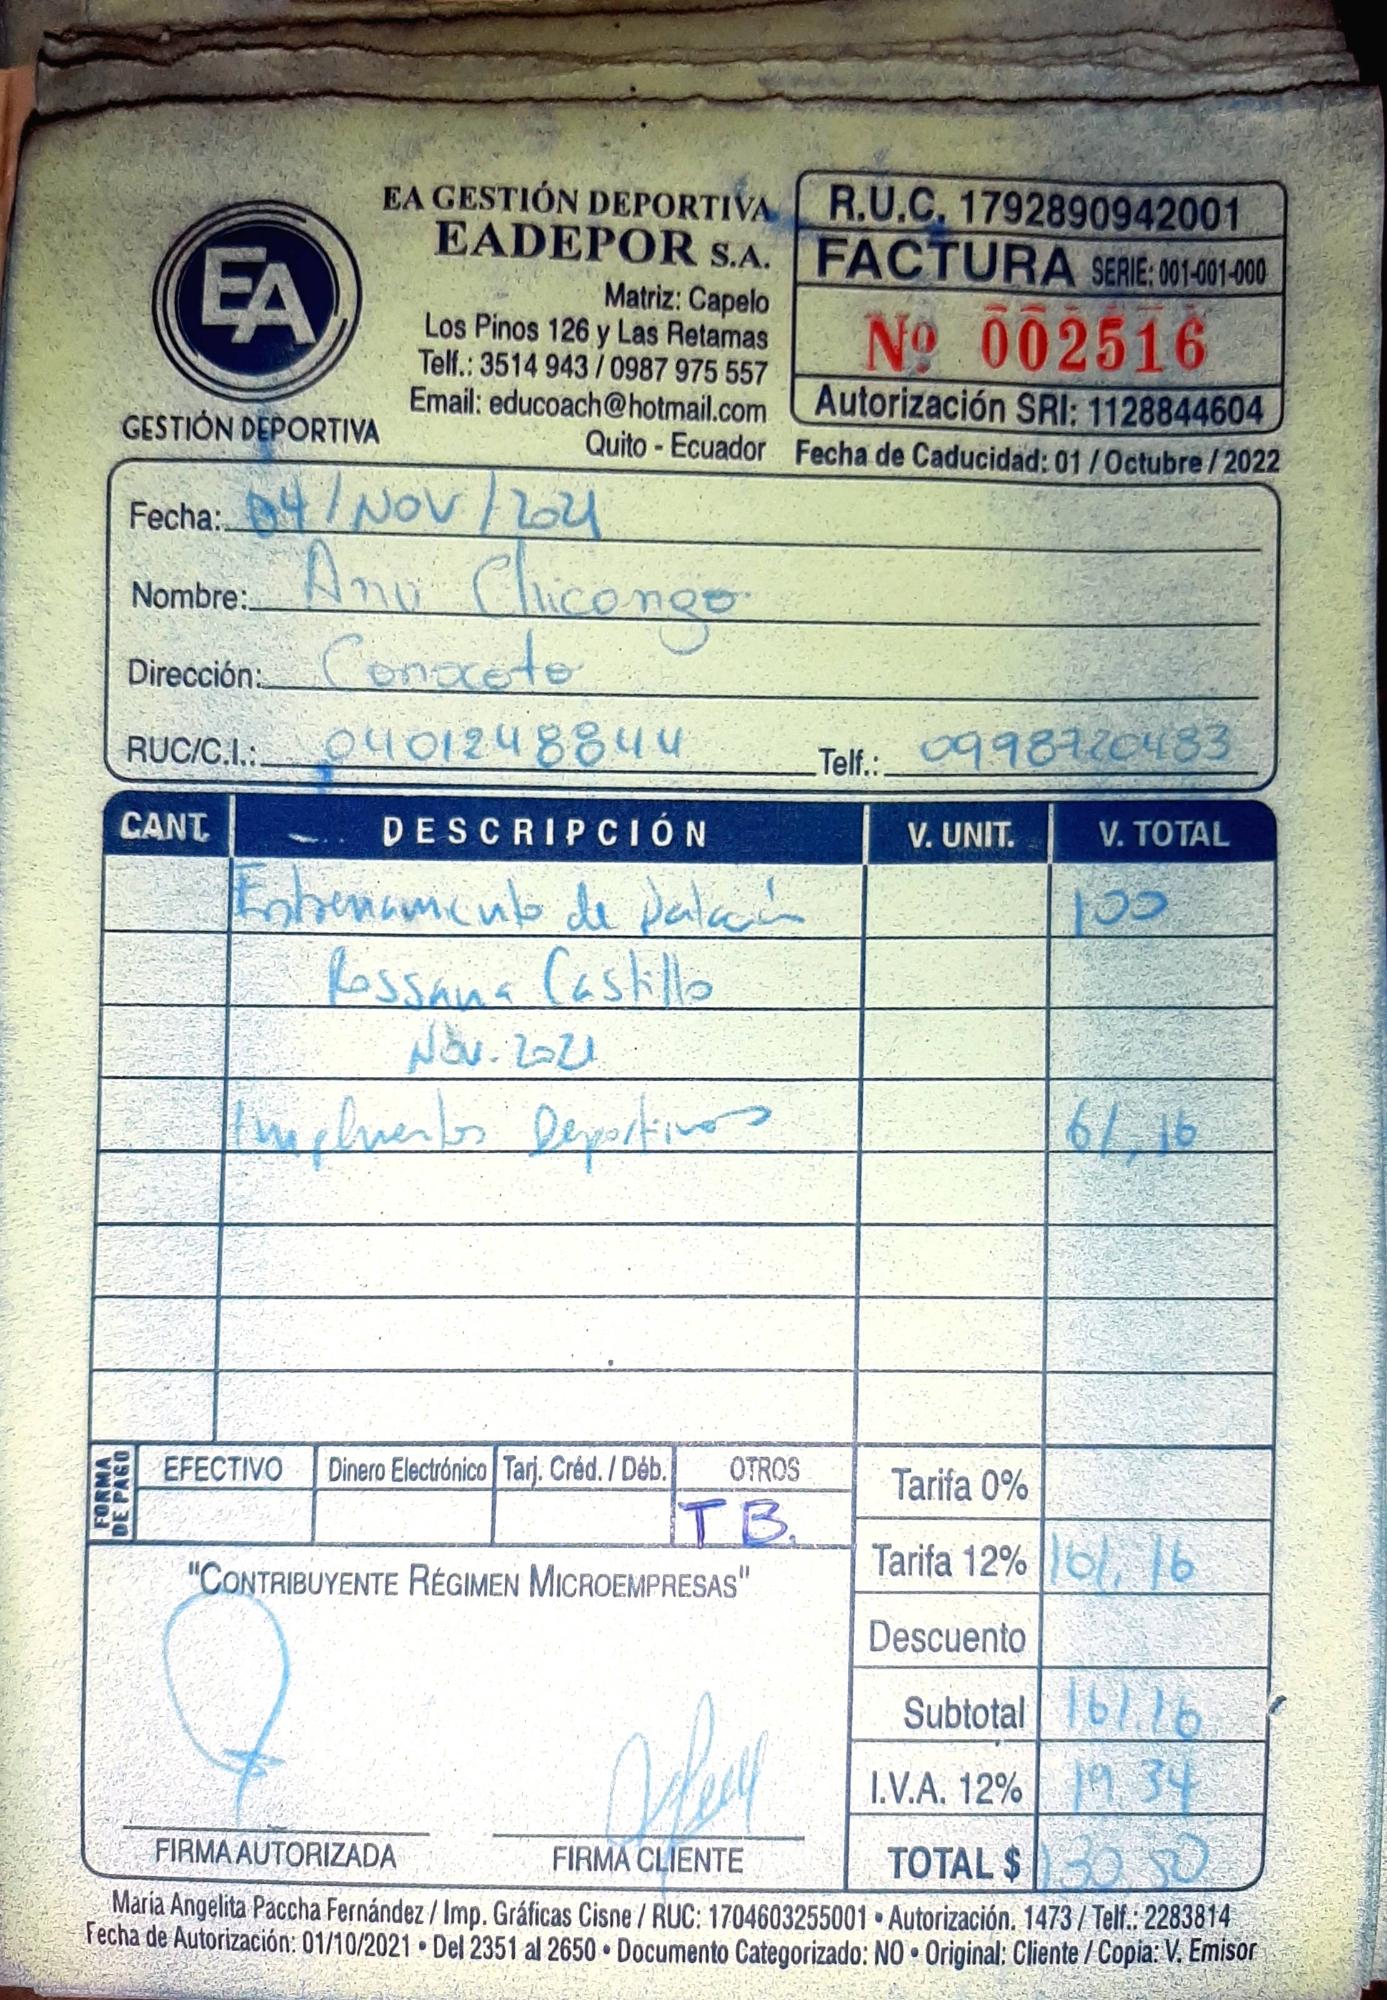 EA GESTIÓN DEPORTIVA
EADEPOR S.A.
Matriz: Capelo
Los Pinos 126 y Las Retamas
Telf.: 3514 943 / 0987 975 557
Email: educoach@hotmail.com
Quito - Ecuador
EA
GESTIÓN DEPORTIVA
R.U.C. 1792890942001
FACTURA SERIE: 001-001-000
Nº 002516
Autorización SRI: 1128844604
Fecha de Caducidad: 01 / Octubre / 2022
Fecha: 04/NOV/2021
Nombre: Ana Chicongo
Dirección: Conocoto
RUC/C.I.: 0401248844 Telf.: 0998720483
CANT. DESCRIPCIÓN V. UNIT. V. TOTAL
Entrenamiento de Natación 100
Rossana Castillo
Nov. 2021
Implementos Deportivos 61,16
FORMA DE PAGO
EFECTIVO Dinero Electrónico Tarj. Créd. / Déb. OTROS
T B.
Tarifa 0%
Tarifa 12% 161,16
Descuento
Subtotal 161.16
I.V.A. 12% 19.34
TOTAL $
"CONTRIBUYENTE RÉGIMEN MICROEMPRESAS"
FIRMA AUTORIZADA FIRMA CLIENTE
María Angelita Paccha Fernández / Imp. Gráficas Cisne / RUC: 1704603255001 • Autorización. 1473 / Telf.: 2283814
Fecha de Autorización: 01/10/2021 • Del 2351 al 2650 • Documento Categorizado: NO • Original: Cliente / Copia: V. Emisor